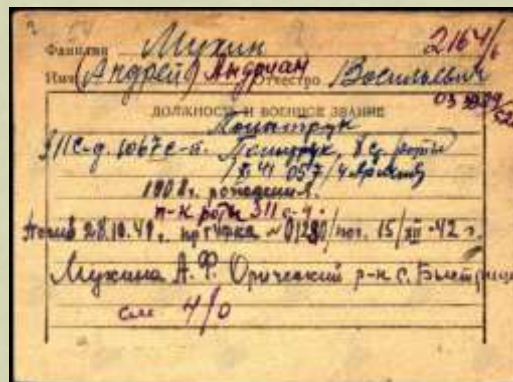 Фамилия Мухин 2164/6
Имя (Андрей) Андриан Отчество Васильевич
ДОЛЖНОСТЬ И ВОЕННОЕ ЗВАНИЕ
Политрук
311 с.д. 1067 с.п. Политрук роты
1908 г. рождения.
п-к роты 311 с.д.
Погиб 28.10.41 г. пр. ГУФКА №01280/пог. 15/XII-42 г.
Мухина А.Ф. Оричевский р-н с. Быстрица
см 4/0